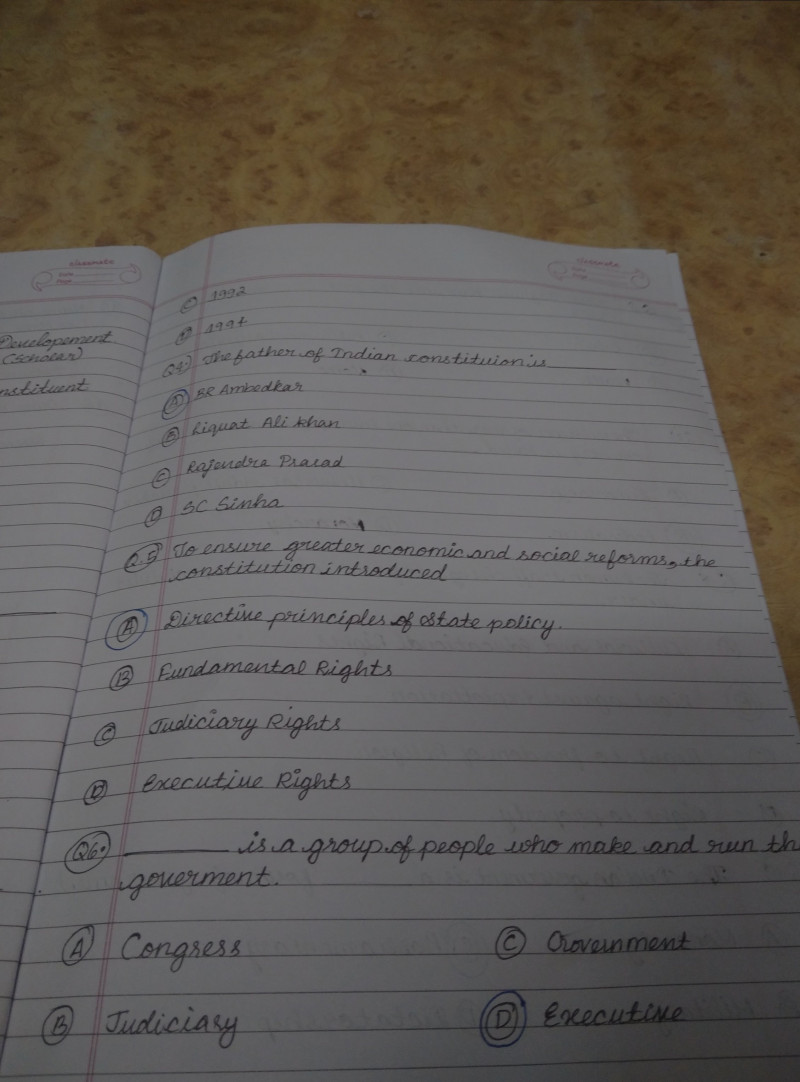 classmate
Date
Page
Developement
(Scholar)
nstituent
classmate
Date
Page
C 1992
D 1994
Q4. The father of Indian constituion is
A BR Ambedkar
B Liquat Ali khan
C Rajendra Prasad
D SC Sinha
Q.5 To ensure greater economic and social reforms, the
constitution introduced
A Directive principles of state policy.
B Fundamental Rights
C Judiciary Rights
D Executive Rights
Q6. ________ is a group of people who make and run th
goverment.
A Congress
C Government
B Judiciary
D Executive